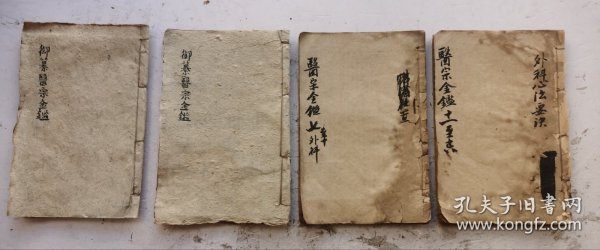 御纂醫宗金鑑
御纂醫宗金鑑
醫宗金鑑
外科
醫宗金鑑十一至
外科心法要訣
孔夫子旧书网
kongfz.com